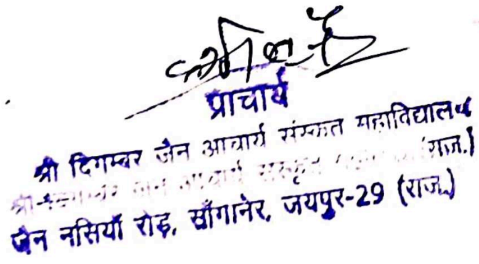 प्राचार्य
श्री दिगम्बर जैन आचार्य संस्कृत महाविद्यालय
(राज.)
जैन नसियाँ रोड़, साँगानेर, जयपुर-29 (राज.)